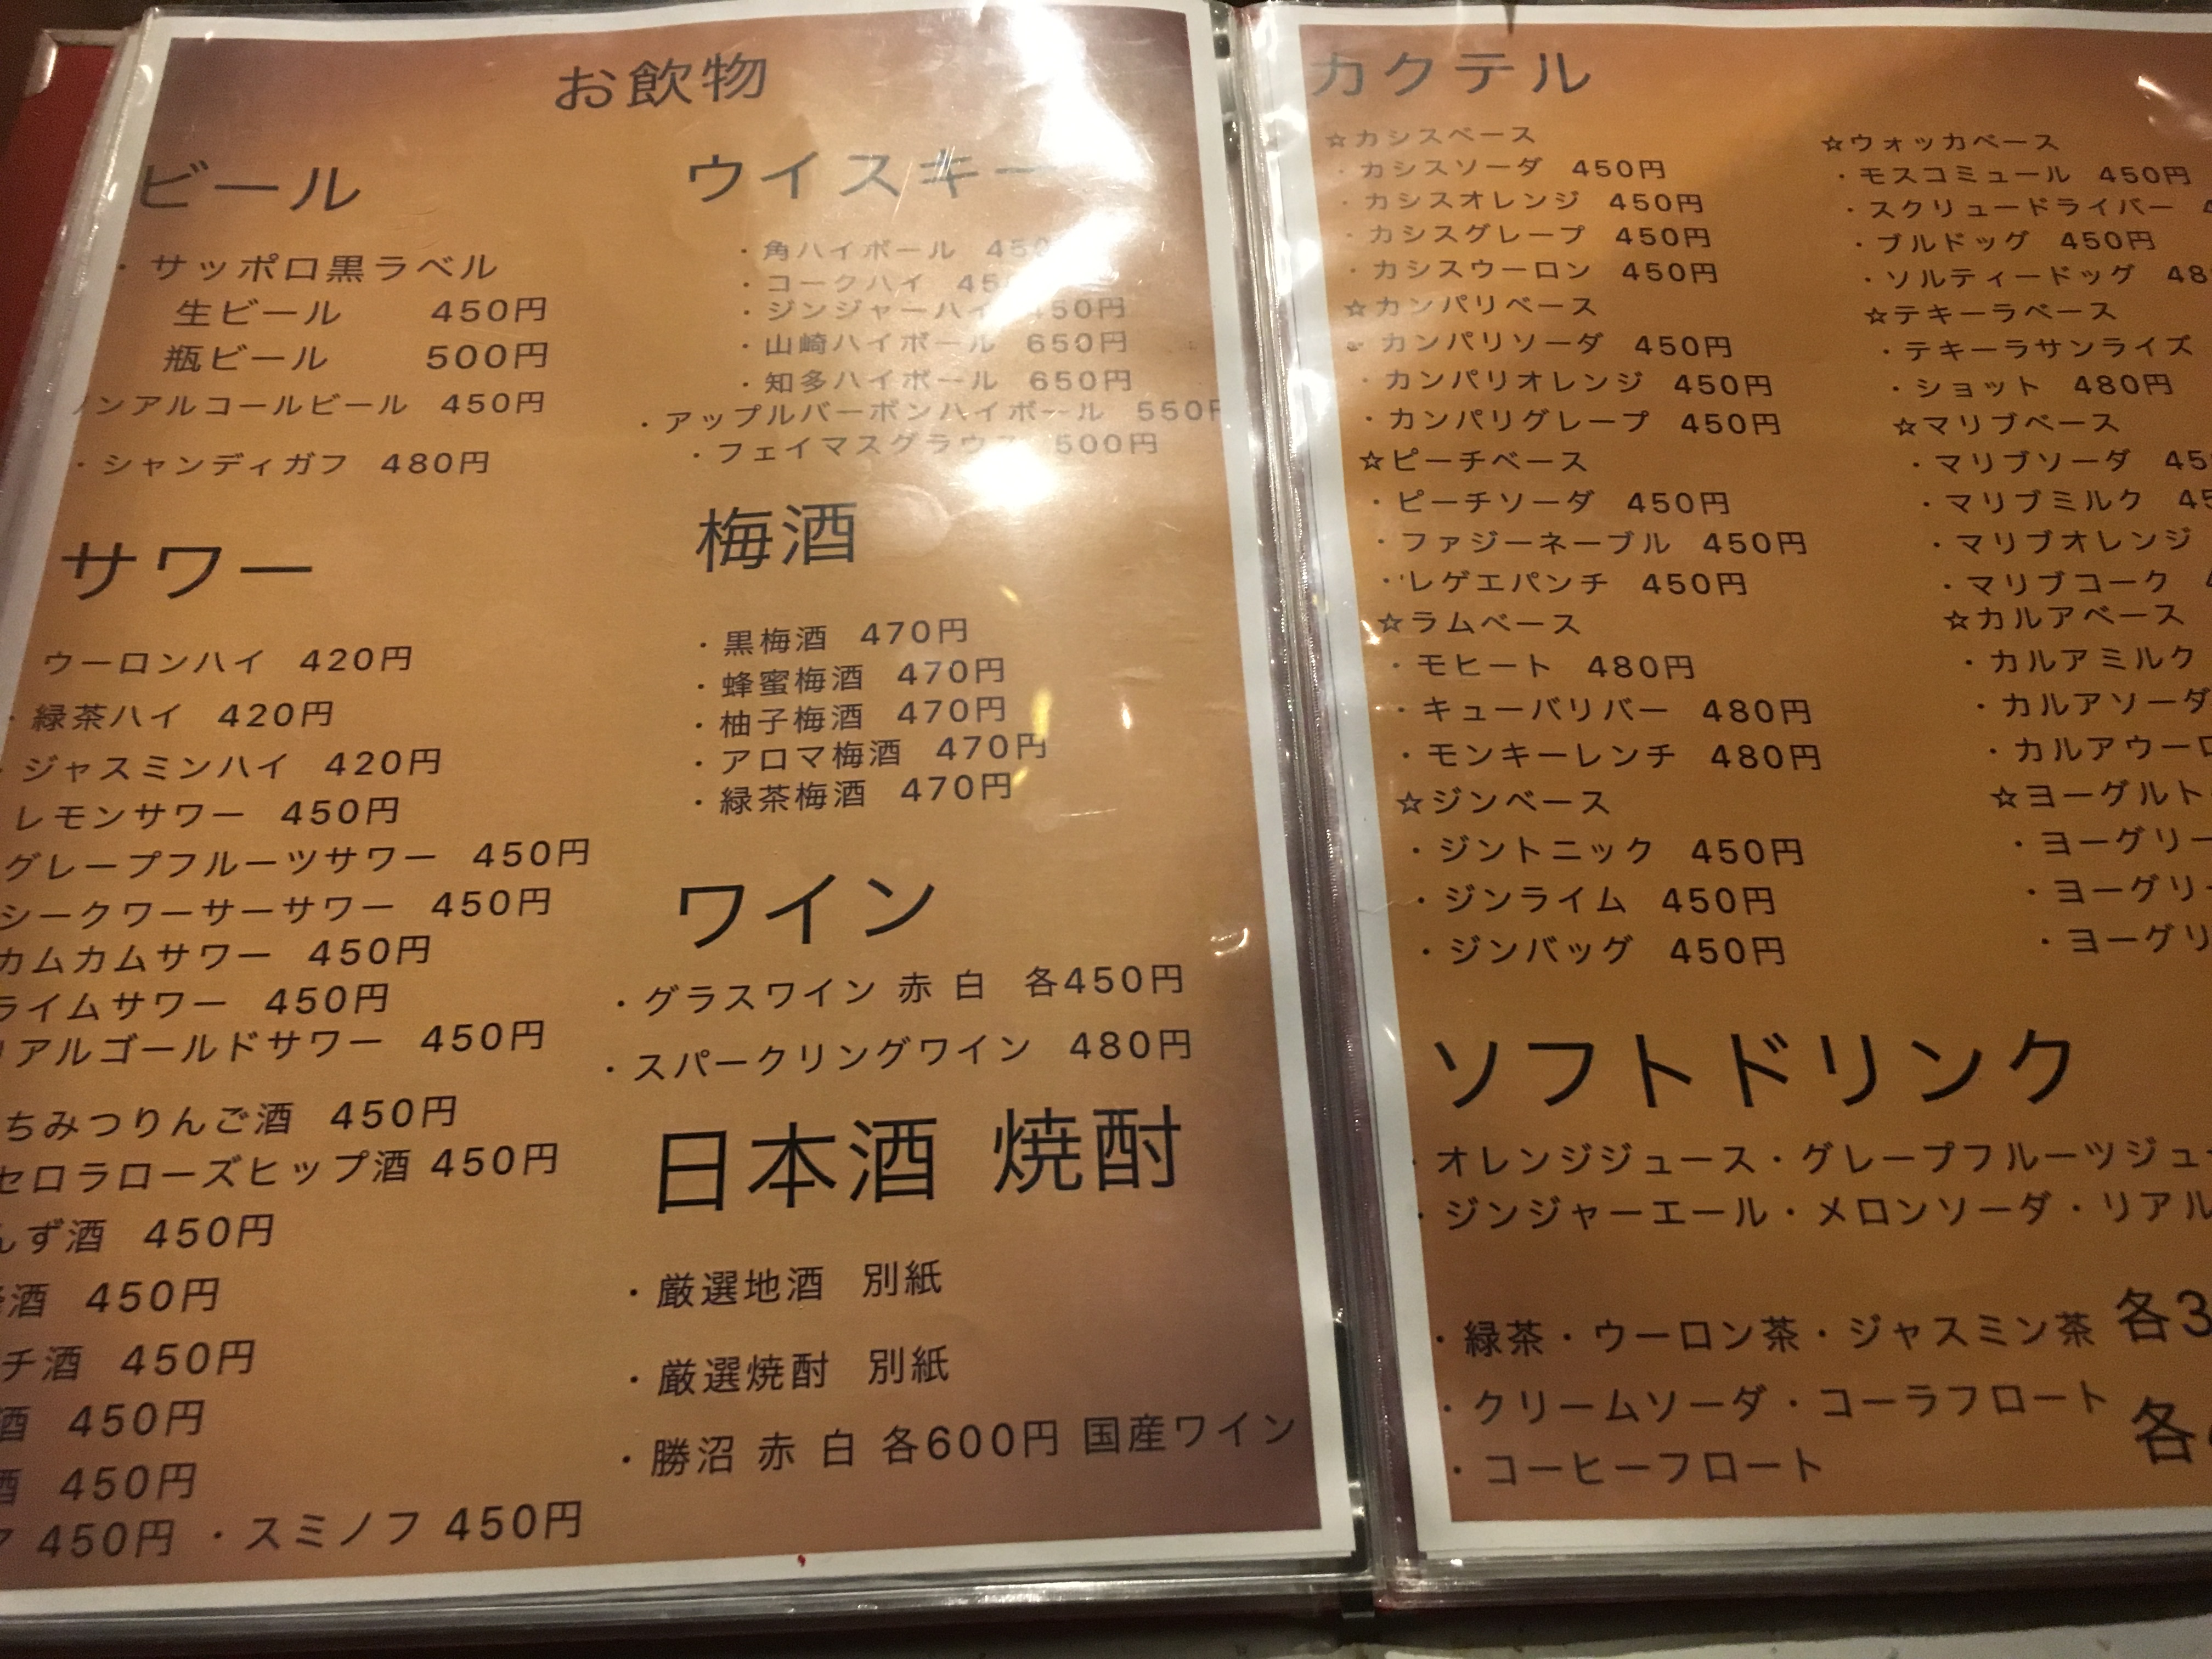 お飲物
ビール
・サッポロ黒ラベル
生ビール 450円
瓶ビール 500円
ンアルコールビール 450円
・シャンディガフ 480円
サワー
ウーロンハイ 420円
・緑茶ハイ 420円
・ジャスミンハイ 420円
レモンサワー 450円
グレープフルーツサワー 450円
シークワーサーサワー 450円
カムカムサワー 450円
ライムサワー 450円
リアルゴールドサワー 450円
ちみつりんご酒 450円
セロラローズヒップ酒 450円
んず酒 450円
酒 450円
チ酒 450円
酒 450円
酒 450円
450円 ・スミノフ 450円
ウイスキー
・角ハイボール 450
・コークハイ 45
・ジンジャーハイ 450円
・山崎ハイボール 650円
・知多ハイボール 650円
・アップルバーボンハイボール 550円
・フェイマスグラウス 500円
梅酒
・黒梅酒 470円
・蜂蜜梅酒 470円
・柚子梅酒 470円
・アロマ梅酒 470円
・緑茶梅酒 470円
ワイン
・グラスワイン 赤 白 各450円
・スパークリングワイン 480円
日本酒 焼酎
・厳選地酒 別紙
・厳選焼酎 別紙
・勝沼 赤 白 各600円 国産ワイン
カクテル
☆カシスベース
・カシスソーダ 450円
・カシスオレンジ 450円
・カシスグレープ 450円
・カシスウーロン 450円
☆カンパリベース
・カンパリソーダ 450円
・カンパリオレンジ 450円
・カンパリグレープ 450円
☆ピーチベース
・ピーチソーダ 450円
・ファジーネーブル 450円
・レゲエパンチ 450円
☆ラムベース
・モヒート 480円
・キューバリバー 480円
・モンキーレンチ 480円
☆ジンベース
・ジントニック 450円
・ジンライム 450円
・ジンバッグ 450円
☆ウォッカベース
・モスコミュール 450円
・スクリュードライバー 4
・ブルドッグ 450円
・ソルティードッグ 48
☆テキーラベース
・テキーラサンライズ
・ショット 480円
☆マリブベース
・マリブソーダ 45
・マリブミルク 45
・マリブオレンジ
・マリブコーク
☆カルアベース
・カルアミルク
・カルアソーダ
・カルアウーロ
☆ヨーグルト
・ヨーグリー
・ヨーグリ
・ヨーグリ
ソフトドリンク
・オレンジジュース・グレープフルーツジュ
・ジンジャーエール・メロンソーダ・リアル
各3
・緑茶・ウーロン茶・ジャスミン茶
・クリームソーダ・コーラフロート
各4
・コーヒーフロート